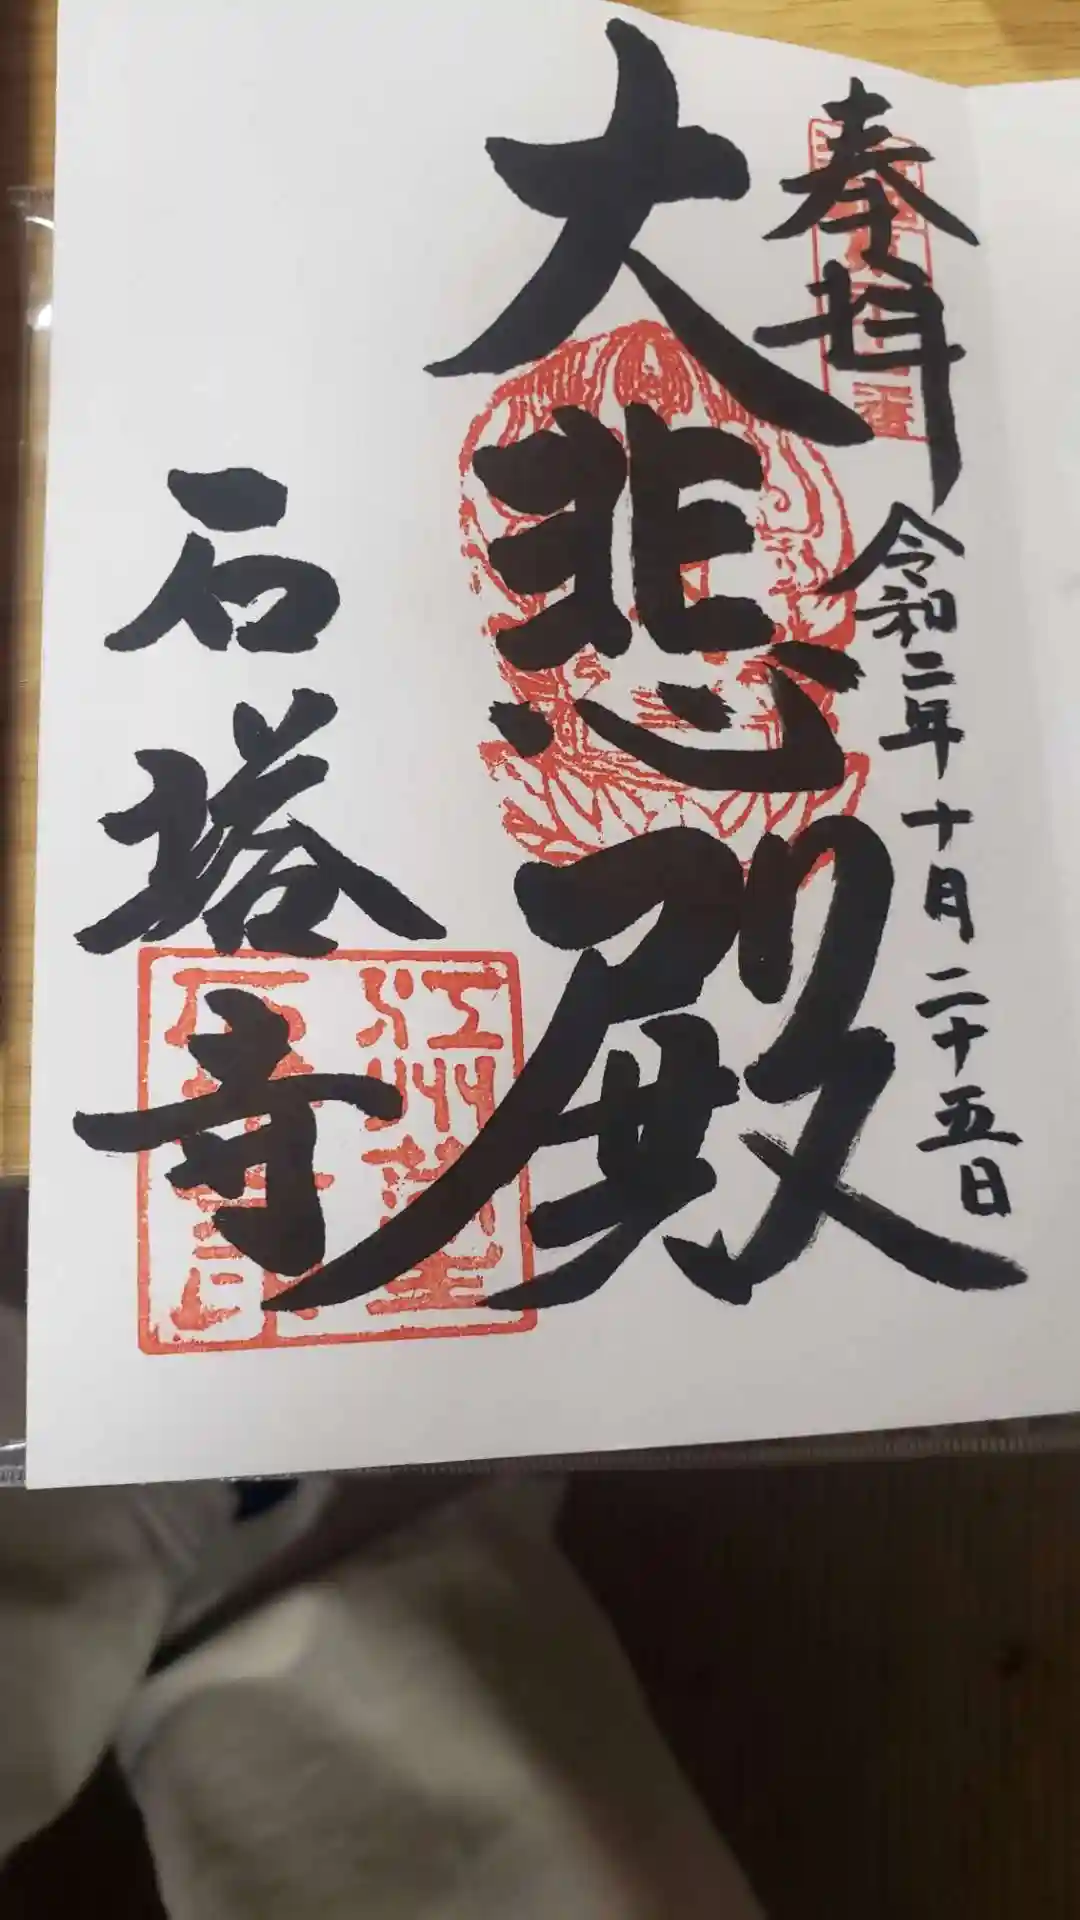 奉拝
令和二年十月二十五日
大悲殿
石塔寺
江州蒲生